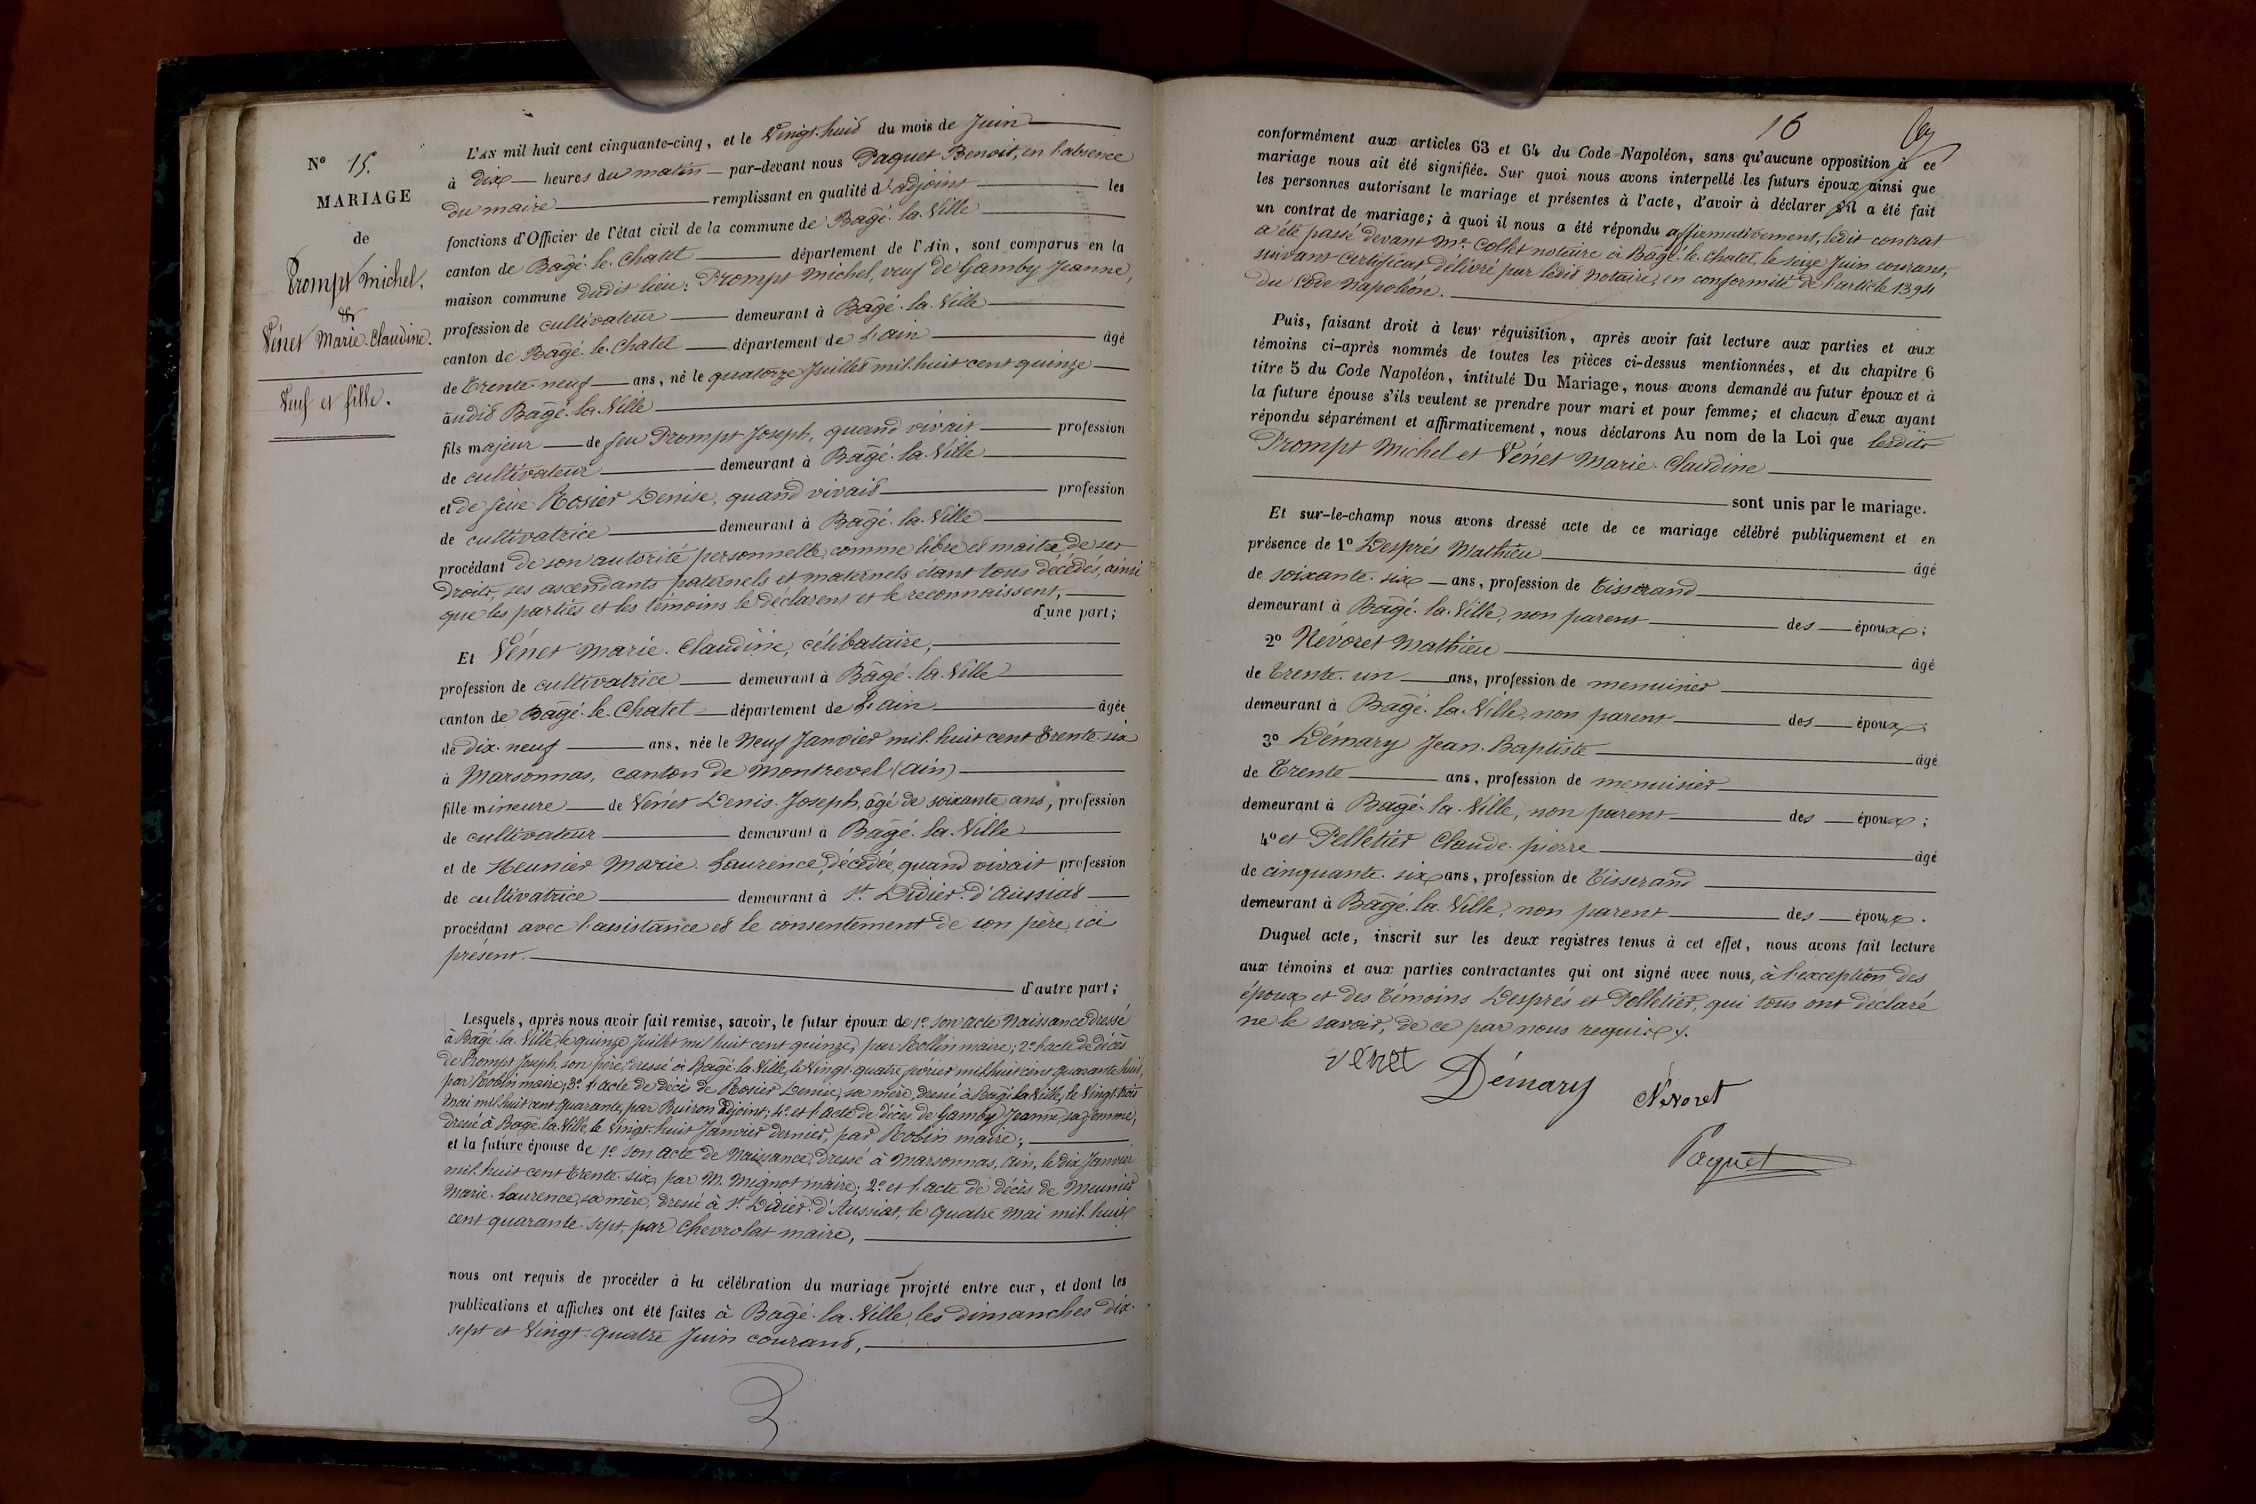 N° 15.
MARIAGE
de
Prompt Michel,
&
Vénet Marie-Claudine.
Veuf et fille.
L'AN mil huit cent cinquante-cinq, et le Vingt-huit du mois de Juin
à dix heures du matin par-devant nous Paquet Benoit, en l'absence
du maire remplissant en qualité d'adjoint les
fonctions d'Officier de l'état civil de la commune de Bâgé-la-Ville
canton de Bâgé-le-Chatel département de l'Ain, sont comparus en la
maison commune dudit lieu: Prompt Michel, veuf de Gamby Jeanne,
profession de cultivateur demeurant à Bâgé-la-Ville
canton de Bâgé-le-Chatel département de L'ain âgé
de Trente-neuf ans, né le quatorze Juillet mil-huit cent quinze
audit Bâgé-la-Ville
fils majeur de feu Prompt Joseph, quand vivait profession
de cultivateur demeurant à Bâgé-la-Ville
et de feue Rosier Denise, quand vivait profession
de cultivatrice demeurant à Bâgé-la-Ville
procédant de son autorité personnelle, comme libre et maitre de ses
droits, ses ascendants paternels et maternels étant tous décédés, ainsi
que les parties et les témoins le déclarent et le reconnaissent,
d'une part;
Et Vénet Marie-Claudine, célibataire,
profession de cultivatrice demeurant à Bâgé-la-Ville
canton de Bâgé-le-Chatel département de L'ain âgée
de dix-neuf ans, née le Neuf Janvier mil-huit cent Trente-six
à Marsonnas, canton de Montrevel (Ain)
fille mineure de Vénet Denis-Joseph, âgé de soixante ans, profession
de cultivateur demeurant à Bâgé-la-Ville
et de Meunier Marie-Laurence, décédée, quand vivait profession
de cultivatrice demeurant à St. Didier-d'Aussiat
procédant avec l'assistance et le consentement de son père, ici
présent.
d'autre part;
Lesquels, après nous avoir fait remise, savoir, le futur époux de 1° Son acte Naissance dressé
à Bâgé-la-Ville, le quinze Juillet mil huit cent quinze, par Rollin maire; 2° l'acte de décès
de Prompt Joseph, son père, dressé à Bâgé-la-Ville, le Vingt-quatre février mil-huit cent quarante huit,
par Roblin maire; 3° l'acte de décès de Rosier Denise, sa mère, dressé à Bâgé-la-Ville, le Vingt-trois
Mai mil huit cent quarante, par Buiron adjoint; 4° et l'acte de décès de Gamby Jeanne, sa femme,
dressé à Bâgé-la-Ville, le Vingt-huit Janvier dernier, par Robin maire;
et la future épouse de 1° Son acte de Naissance, dressé à Marsonnas, Ain, le dix Janvier
mil-huit cent Trente-six, par M. Mignot maire; 2° et l'acte de décès de Meunier
Marie-Laurence, sa mère, dressé à St. Didier-d'Aussiat, le quatre Mai mil-huit
cent quarante-sept, par Chevrolat maire,
nous ont requis de procéder à la célébration du mariage projeté entre eux, et dont les
publications et affiches ont été faites à Bâgé-la-Ville, les dimanches dix-
sept et Vingt-quatre Juin courant,
16
conformément aux articles 63 et 64 du Code Napoléon, sans qu'aucune opposition à ce
mariage nous ait été signifiée. Sur quoi nous avons interpellé les futurs époux ainsi que
les personnes autorisant le mariage et présentes à l'acte, d'avoir à déclarer s'il a été fait
un contrat de mariage; à quoi il nous a été répondu affirmativement, ledit contrat
a été passé devant Me. Collet notaire à Bâgé-le-Chatel, le seize Juin courant,
suivant certificat délivré par ledit Notaire, en conformité de l'article 1394
du Code Napoléon.
Puis, faisant droit à leur réquisition, après avoir fait lecture aux parties et aux
témoins ci-après nommés de toutes les pièces ci-dessus mentionnées, et du chapitre 6
titre 5 du Code Napoléon, intitulé Du Mariage, nous avons demandé au futur époux et à
la future épouse s'ils veulent se prendre pour mari et pour femme; et chacun d'eux ayant
répondu séparément et affirmativement, nous déclarons Au nom de la Loi que lesdits
Prompt Michel et Vénet Marie-Claudine
sont unis par le mariage.
Et sur-le-champ nous avons dressé acte de ce mariage célébré publiquement et en
présence de 1° Després Mathieu âgé
de soixante-six ans, profession de Tisserand
demeurant à Bâgé-la-Ville, non parent des époux;
2° Névoret Mathieu âgé
de Trente-un ans, profession de menuisier
demeurant à Bâgé-la-Ville, non parent des époux;
3° Démary Jean-Baptiste âgé
de Trente ans, profession de menuisier
demeurant à Bâgé-la-Ville, non parent des époux;
4° et Pelletier Claude-pierre âgé
de cinquante-six ans, profession de Tisserand
demeurant à Bâgé-la-Ville, non parent des époux.
Duquel acte, inscrit sur les deux registres tenus à cet effet, nous avons fait lecture
aux témoins et aux parties contractantes qui ont signé avec nous, à l'exception des
époux et des Témoins Després et Pelletier, qui tous ont déclaré
ne le savoir, de ce par nous requis.
vénet Démary Névoret
Paquet